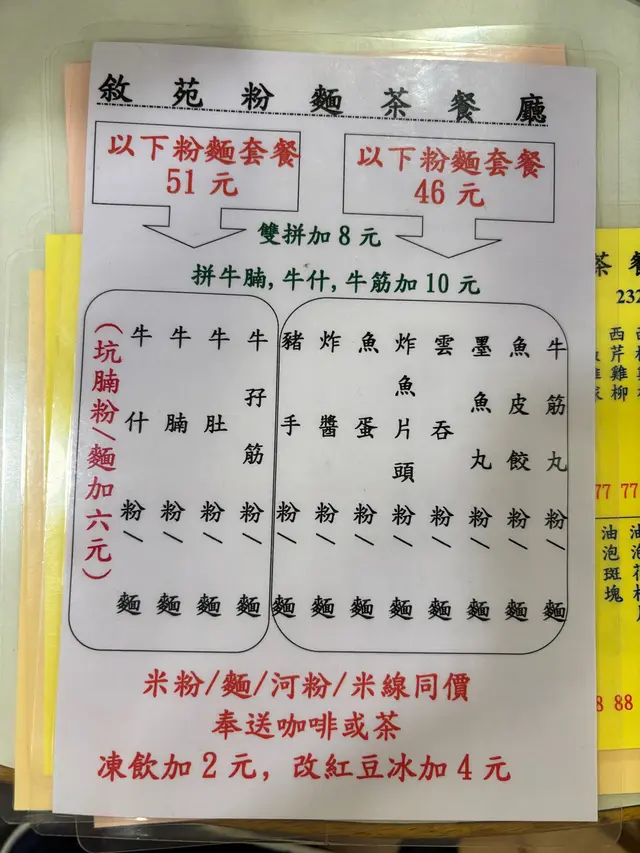 敘苑粉麵茶餐廳
以下粉麵套餐
51 元
以下粉麵套餐
46 元
雙拼加 8 元
拼牛腩,牛什,牛筋加 10 元
牛筋丸粉/麵
魚皮餃粉/麵
墨魚丸粉/麵
雲吞粉/麵
炸魚片頭粉/麵
魚蛋粉/麵
炸醬粉/麵
豬手粉/麵
牛孖筋粉/麵
牛肚粉/麵
牛腩粉/麵
牛什粉/麵
(坑腩粉/麵加六元)
米粉/麵/河粉/米線同價
奉送咖啡或茶
凍飲加 2 元, 改紅豆冰加 4 元
茶
232
西芹雞柳
77 77
油泡斑塊
8 88